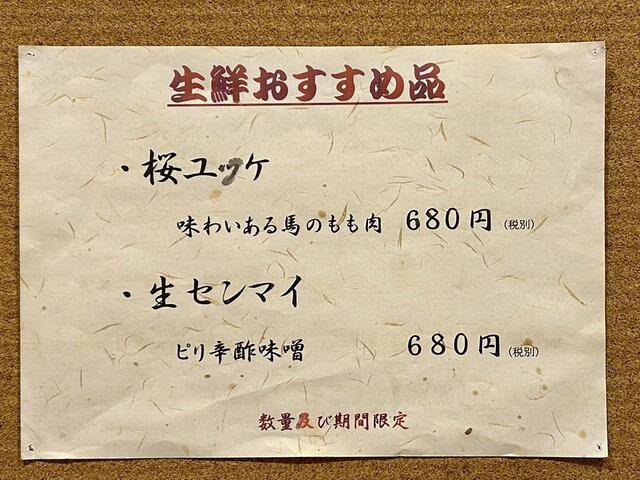 生鮮おすすめ品
・桜ユッケ
味わいある馬のもも肉 680円(税別)
・生センマイ
ピリ辛酢味噌 680円(税別)
数量及び期間限定